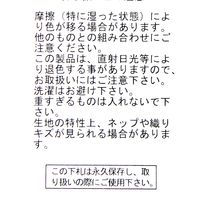 摩擦（特に湿った状態）によ
り色が移る場合があります。
他のものとの組み合わせにご
注意ください。
この製品は、直射日光等によ
り退色する事がありますので、
お取扱いにはご注意下さい。
洗濯はお避け下さい。
重すぎるものは入れないで下
さい。
生地の特性上、ネップや織り
キズが見られる場合がありま
す。
この下札は永久保存し、取
り扱いの際にご使用下さい。